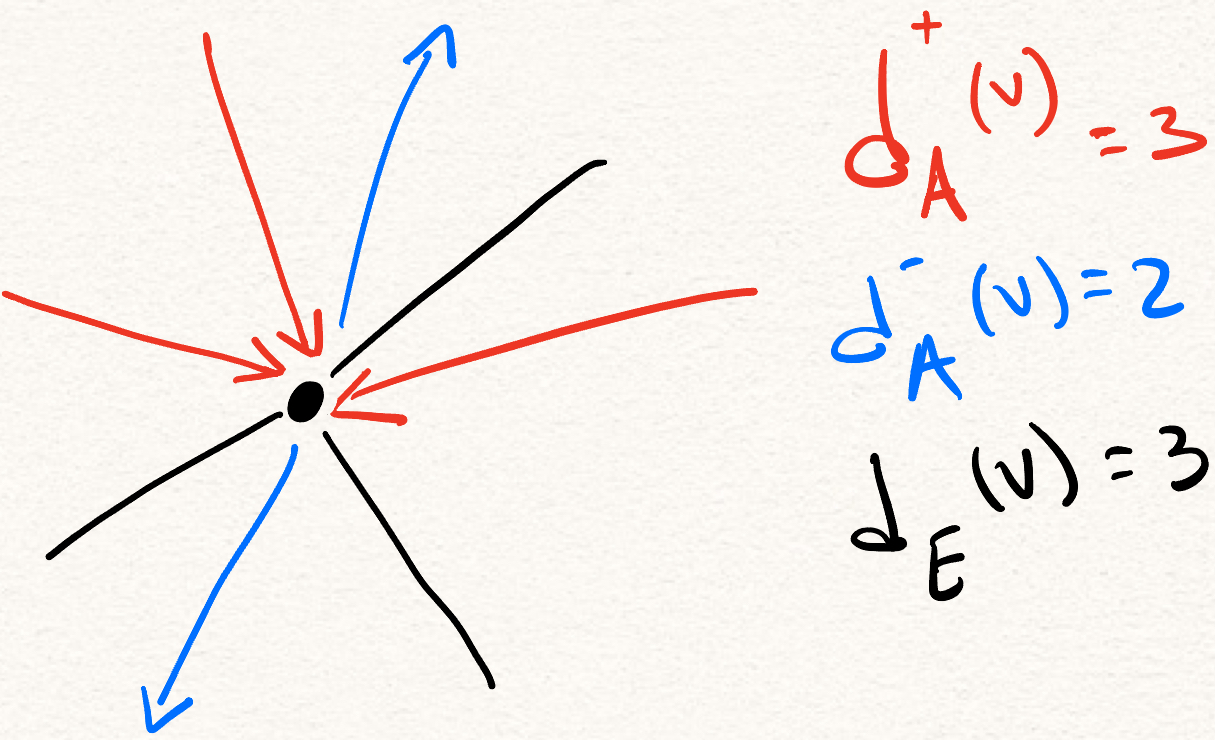 d⁺_A(v) = 3
d⁻_A(v) = 2
d_E(v) = 3